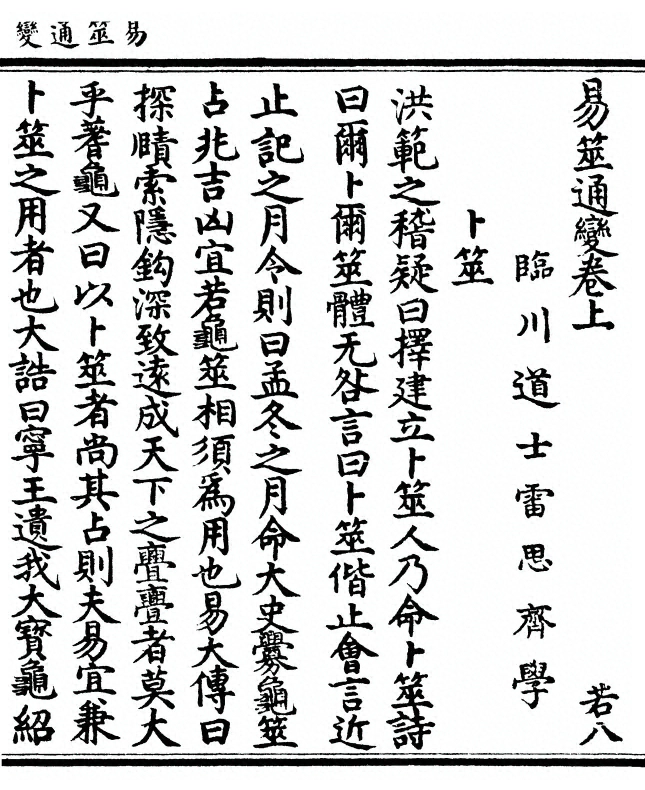 易筮通變
易筮通變卷上
若八
臨川道士雷思齊學
卜筮
洪範之稽疑曰擇建立卜筮人乃命卜筮詩
曰爾卜爾筮體无咎言曰卜筮偕止會言近
止記之月令則曰孟冬之月命大史釁龜筮
占兆吉凶宜若龜筮相須爲用也易大傳曰
探賾索隱鈎深致遠成天下之亹亹者莫大
乎蓍龜又曰以卜筮者尚其占則夫易宜兼
卜筮之用者也大誥曰寧王遺我大寶龜紹